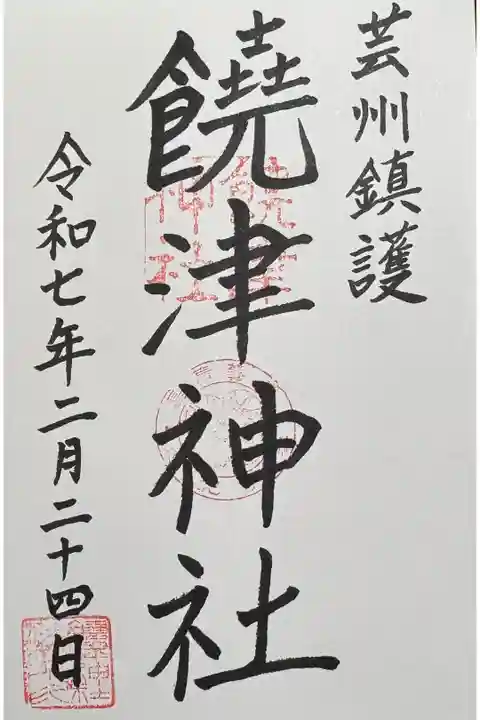 芸州鎮護
饒津神社
令和七年二月二十四日